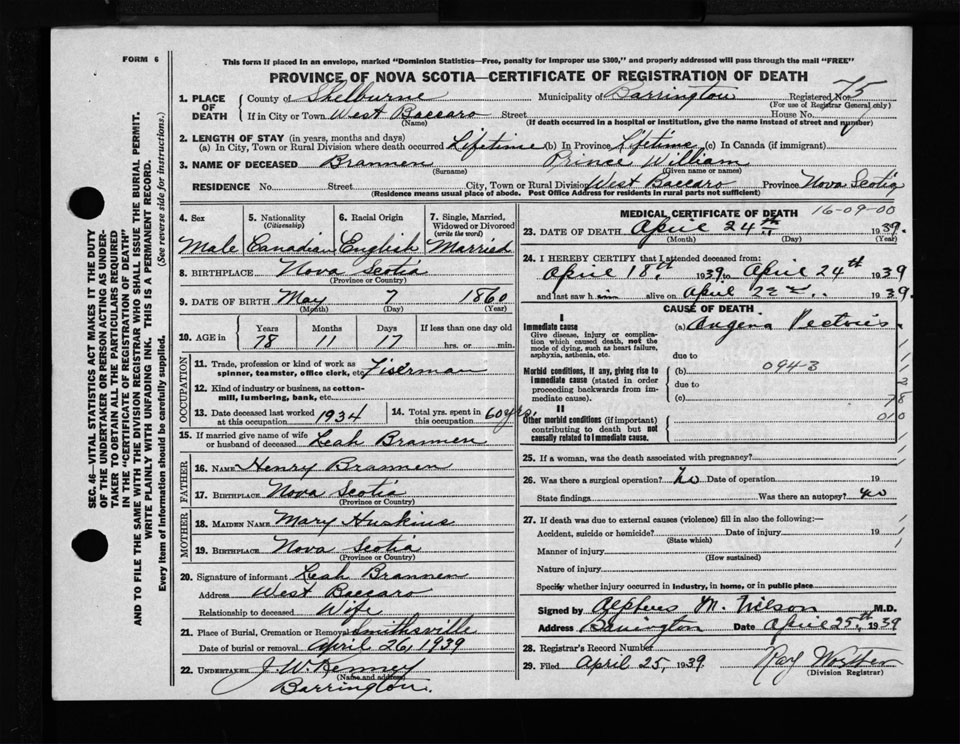 FORM 6
This form if placed in an envelope, marked "Dominion Statistics—Free, penalty for improper use $300," and properly addressed will pass through the mail "FREE"
PROVINCE OF NOVA SCOTIA—CERTIFICATE OF REGISTRATION OF DEATH
1. PLACE OF DEATH
County of Shelburne Municipality of Barrington Registered No. 75
(For use of Registrar General only)
If in City or Town West Baccaro Street House No.
(Name) (If death occurred in a hospital or institution, give the name instead of street and number)
2. LENGTH OF STAY (in years, months and days)
(a) In City, Town or Rural Division where death occurred Lifetime (b) In Province Lifetime (c) In Canada (if immigrant)
3. NAME OF DECEASED Brannen Prince William
(Surname) (Given name or names)
RESIDENCE No. Street City, Town or Rural Division West Baccaro Province Nova Scotia
(Residence means usual place of abode. Post Office Address for residents in rural parts not sufficient)
4. Sex Male
5. Nationality (Citizenship) Canadian
6. Racial Origin English
7. Single, Married, Widowed or Divorced (write the word) Married
8. BIRTHPLACE Nova Scotia
(Province or Country)
9. DATE OF BIRTH May 7 1860
(Month) (Day) (Year)
10. AGE in Years 78 Months 11 Days 17 If less than one day old hrs. or min.
OCCUPATION
11. Trade, profession or kind of work as spinner, teamster, office clerk, etc. Fiserman
12. Kind of industry or business, as cotton-mill, lumbering, bank, etc.
13. Date deceased last worked at this occupation 1934
14. Total yrs. spent in this occupation 60 yrs.
15. If married give name of wife or husband of deceased Leah Brannen
FATHER
16. NAME Henry Brannen
17. BIRTHPLACE Nova Scotia
(Province or Country)
MOTHER
18. MAIDEN NAME Mary Huskins
19. BIRTHPLACE Nova Scotia
(Province or Country)
20. Signature of informant Leah Brannen
Address West Baccaro
Relationship to deceased Wife
21. Place of Burial, Cremation or Removal Smithsville
Date of burial or removal April 26, 1939
22. UNDERTAKER J. W. Kenney
(Name and address)
Barrington.
MEDICAL CERTIFICATE OF DEATH
16-09-00
23. DATE OF DEATH April 24th 1939.
(Month) (Day) (Year)
24. I HEREBY CERTIFY that I attended deceased from:
April 18th, 1939 to April 24th 1939
and last saw him alive on April 1939.
CAUSE OF DEATH
I
Immediate cause
Give disease, injury or complication which caused death, not the mode of dying, such as heart failure, asphyxia, asthenia, etc.
(a) Angina
due to
Morbid conditions, if any, giving rise to immediate cause (stated in order proceeding backwards from immediate cause).
(b) 094-3
due to
(c) 78
II
Other morbid conditions (if important) contributing to death but not causally related to immediate cause.
010
25. If a woman, was the death associated with pregnancy?
26. Was there a surgical operation? no Date of operation
State findings Was there an autopsy? no
27. If death was due to external causes (violence) fill in also the following:—
Accident, suicide or homicide? Date of injury 19
(State which)
Manner of injury
(How sustained)
Nature of injury
Specify whether injury occurred in industry, in home, or in public place
Signed by Alpheus M. Wilson M.D.
Address Barrington Date April 25th 1939
28. Registrar's Record Number
29. Filed April 25, 1939 Ray
(Division Registrar)
SEC. 46—VITAL STATISTICS ACT MAKES IT THE DUTY
OF THE UNDERTAKER OR PERSON ACTING AS UNDER-
TAKER TO OBTAIN ALL THE PARTICULARS REQUIRED
IN THE "CERTIFICATE OF REGISTRATION OF DEATH"
AND TO FILE THE SAME WITH THE DIVISION REGISTRAR WHO SHALL ISSUE THE BURIAL PERMIT.
WRITE PLAINLY WITH UNFADING INK. THIS IS A PERMANENT RECORD.
Every item of information should be carefully supplied. (See reverse side for instructions.)